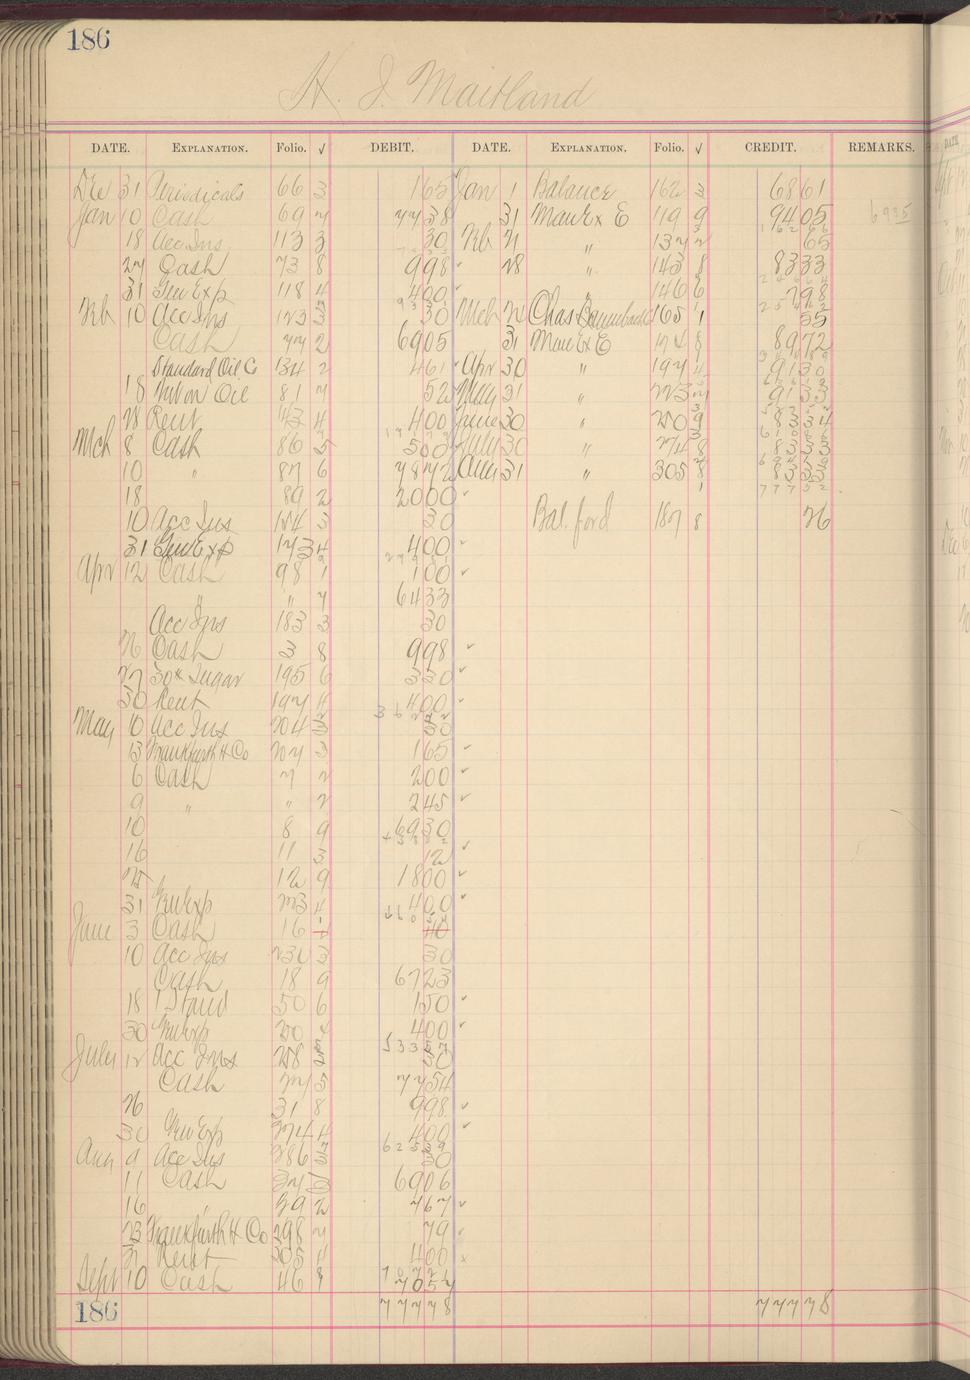 186
H. J. Maitland
DATE. EXPLANATION. Folio. √ DEBIT. DATE. EXPLANATION. Folio. √ CREDIT. REMARKS.
Dec 31 Periodicals 66 3 165 Jan 1 Balance 162 3 6861
Jan 10 Cash 69 7 7738 31 Man Ex E 119 9 9405 6935
18 Acc Ins 113 3 30 Feb 137 65
27 Cash 73 8 998 28 " 143 8 8333
31 Gen Exp 118 4 400 " 146 6 298
Feb 10 Acc Ins 123 3 30 Mch Chas 165 1 55
Cash 77 2 6905 31 Man Ex E 174 8 8972
Standard Oil C 134 2 461 Apr 30 " 197 4 9130
18 Oil 81 7 52 May 31 " 223 9133
28 Rent 143 4 400 June 30 " 250 9 8334
Mch 8 Cash 86 5 500 July 30 " 274 8 8333
10 " 87 6 7872 Aug 31 " 305 8 8333
18 89 2 2000 77752
10 Acc Ins 154 3 30 Bal. ford 187 8 26
31 Gen Exp 173 4 400
Apr 12 Cash 98 1 100
" " 7 6433
Acc Ins 183 3 30
26 Cash 3 8 998
27 50# Sugar 195 6 350
30 Rent 197 4 400
May 10 Acc Ins 204 3 30
13 Frankfurth H Co 207 3 165
6 Cash 7 2 200
9 " " 2 245
10 8 9 6930
16 11 3 12
25 12 9 1800
31 Gen Exp 223 4 400
June 3 Cash 16 1 40
10 Acc Ins 230 3 30
Cash 18 9 6723
18 1 Stand 50 6 150
30 Gen Exp 250 4 400
53357
July 12 Acc Ins 258 3 30
Cash 27 5 7754
26 31 8 998
30 Gen Exp 274 4 400
62539
Aug 9 Acc Ins 286 3 30
11 Cash 34 6906
16 39 2 767
23 Frankfurth H Co 298 7 79
31 Rent 305 4 400
Sept 10 Cash 46 8 7057
186 77778 77778